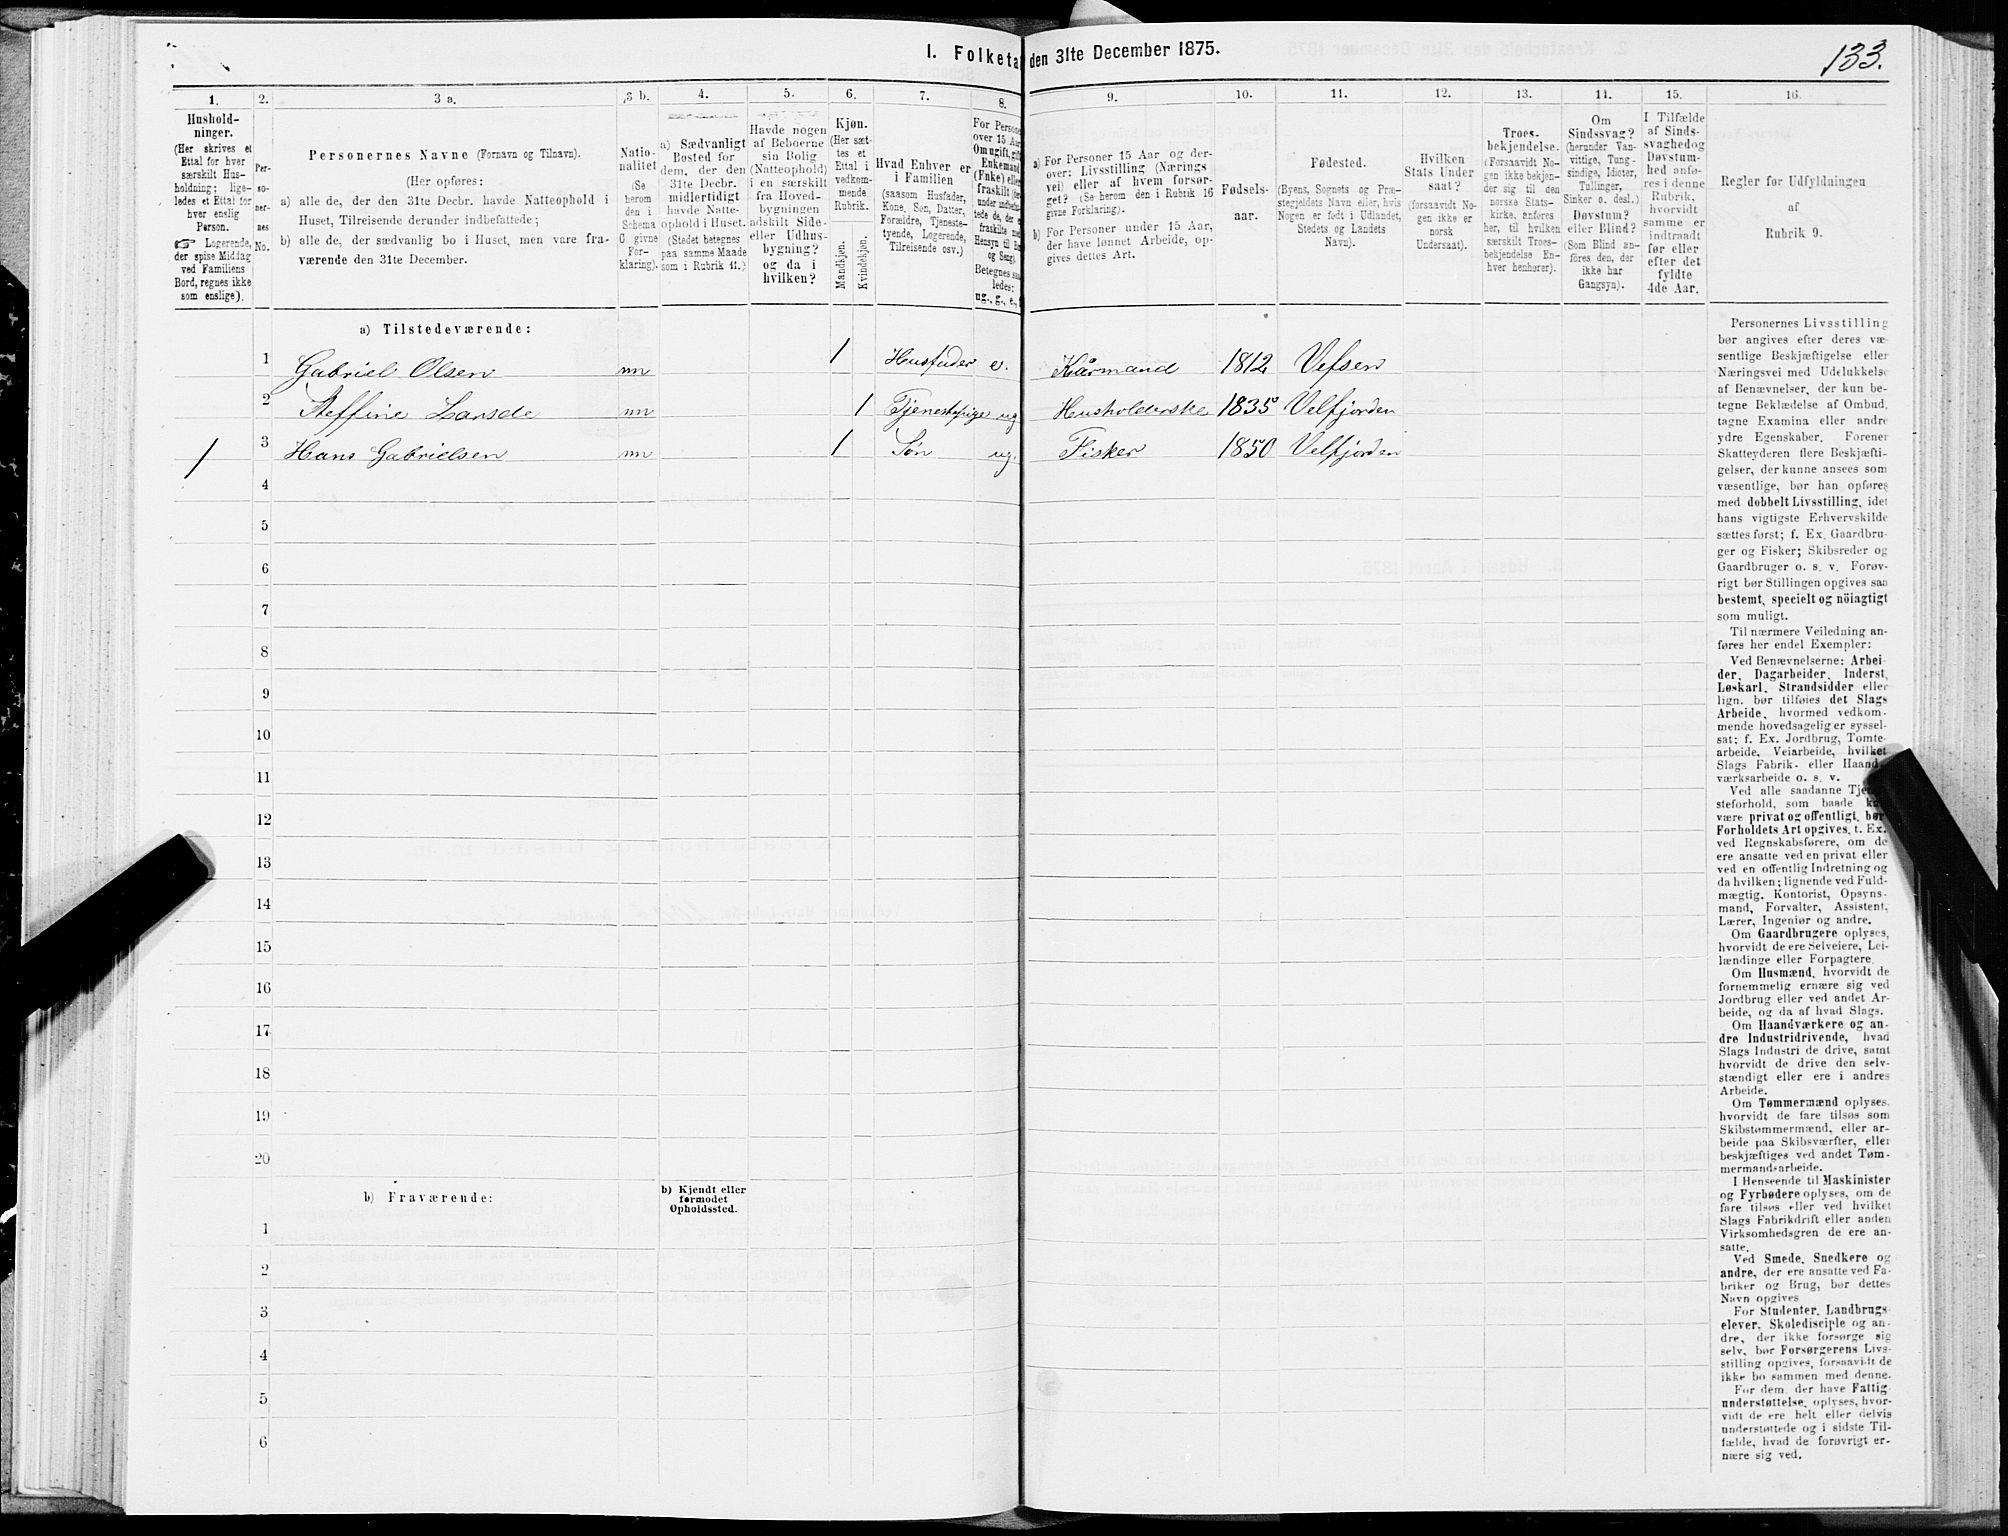 I. Folketa den 31te December 1875.
133.
1.
2.
3 a.
3 b.
4.
5.
6.
7.
8.
9.
10.
11.
12.
13.
14.
15.
16.
Hushold-
ninger.
(Her skrives et
Ettal for hver
særskilt Hus-
holdning; lige-
ledes et Ettal for
hver enslig
Person.
☞ Logerende,
der spise Middag
ved Familiens
Bord, regnes ikke
som enslige).
Per-
so-
ner-
nes
No.
Personernes Navne (Fornavn og Tilnavn).
(Her opføres:
a) alle de, der den 31te Decbr. havde Natteophold i
Huset, Tilreisende derunder indbefattede;
b) alle de, der sædvanlig bo i Huset, men vare fra-
værende den 31te December.
Natio-
nalitet
(Se
herom
den i
Schema
C givne
For-
klaring).
a) Sædvanligt
Bosted for
dem, der den
31te Decbr.
midlertidigt
havde Natte-
ophold i Huset.
(Stedet betegnes
paa samme Maade
som i Rubrik 11.)
Havde nogen
af Beboerne
sin Bolig
(Natteophold)
i en særskilt
fra Hoved-
bygningen
adskilt Side-
eller Udhus-
bygning?
og da i
hvilken?
Kjøn.
(Her sæt-
tes et
Ettal i
vedkom-
mende
Rubrik.
Mandkjøn.
Kvindekjøn.
Hvad Enhver er
i Familien
(saasom Husfader,
Kone, Søn, Datter,
Forældre, Tjeneste-
tyende, Logerende,
Tilreisende osv.)
For Persone
over 15 Aar
Om ugift, gift
Enkemand
(Enke) elle
fraskilt (for
under indbefat-
tede de, der e
fraskilte med
Hensyn til Bo
og Seng).
Betegnes saa
ledes:
ug., g., e.,
a) For Personer 15 Aar og der-
over: Livsstilling (Nærings
vei) eller af hvem forsør-
get? (Se herom i Rubrik 16
givne Forklaring).
b) For Personer under 15 Aar,
der have lønnet Arbeide, op-
gives dettes Art.
Fødsels-
aar.
Fødested.
(Byens, Sognets og Præ-
stegjeldets Navn eller, hvis
Nogen er født i Udlandet,
Stedets og Landets
Navn).
Hvilken
Stats Under
saat?
(forsaavidt No-
gen ikke er
norsk
Undersaat).
Troes-
bekjendelse.
(Forsaavidt No-
gen ikke bekjen-
der sig til den
norske Stats-
kirke, anføres
her, til hvilken
særskilt Troes-
bekjendelse En-
hver henhører).
Om
Sindssvag?
(herunder Van-
vittige, Tung-
sindige, Idioter,
Tullinger,
Sinker o. desl.)
Døvstum?
eller Blind?
(Som Blind an-
føres den, der
ikke har
Gangsyn).
I Tilfælde
af Sinds-
svaghed og
Døvstum-
hed anfø-
res i denne
Rubrik,
hvorvidt
samme er
indtraadt
før eller
efter det
fyldte
4de Aar.
Regler før Udfyldningen
af
Rubrik 9.
a) Tilstedeværende:
1 Gabriel Olsen nn 1 Husfader e. Kårmand 1812 Vefsen
2 Steffine Larsdr nn 1 Tjenestpige ug Husholderske 1835 Velfjorden
1 3 Hans Gabrielsen nn 1 Søn ug. Fisker 1850 Velfjorden
4
5
6
7
8
9
10
11
12
13
14
15
16
17
18
19
20
b) Fraværende:
b) Kjendt eller
formodet
Opholdssted.
1
2
3
4
5
6
Personernes Livsstilling
bør angives efter deres væ-
sentlige Beskjæftigelse eller
Næringsvei med Udelukkelse
af Benævnelser, der kun be-
tegne Beklædelse af Ombud,
tagne Examina eller andre
ydre Egenskaber. Forener
Skatteyderen flere Beskjæfti-
gelser, der kunne ansees som
væsentlige, bør han opføres
med dobbelt Livsstilling, idet
hans vigtigste Erhvervskilde
sættes først; f. Ex. Gaardbru-
ger og Fisker; Skibsreder og
Gaardbruger o. s. v. Forøv-
rigt bør Stillingen opgives saa
bestemt, specielt og nöiagtigt
som muligt.
Til nærmere Veiledning an-
føres her endel Exempler:
Ved Benævnelserne: Arbei-
der, Dagarbeider, Inderst,
Løskarl, Strandsidder eller
lign. bør tilføies det Slags
Arbeide, hvormed vedkom-
mende hovedsagelig er syssel-
sat; f. Ex. Jordbrug, Tomte-
arbeide, Veiarbeide, hvilket
Slags Fabrik- eller Haand-
værksarbeide o. s. v.
Ved alle saadanne Tjene-
steforhold, som baade k
være privat og offentligt, bør
Forholdets Art opgives, t. Ex.
ved Regnskabsførere, om de
ere ansatte ved en privat eller
ved en offentlig Indretning og
da hvilken; lignende ved Fuld-
mægtig, Kontorist, Opsyns-
mand, Forvalter, Assistent,
Lærer, Ingeniør og andre.
Om Gaardbrugere oplyses,
hvorvidt de ere Selveiere, Lei-
lændinge eller Forpagtere.
Om Husmænd, hvorvidt de
fornemmelig ernære sig ved
Jordbrug eller ved andet Ar-
beide, og da af hvad Slags.
Om Haandværkere og an-
dre Industridrivende, hvad
Slags Industri de drive, samt
hvorvidt de drive den selv-
stændigt eller ere i andres
Arbeide.
Om Tømmermænd oplyses,
hvorvidt de fare tilsøs som
Skibstømmermænd, eller ar-
beide paa Skibsværfter, eller
beskjæftiges ved andet Tøm-
mermandsarbeide.
I Henseende til Maskinister
og Fyrbødere oplyses, om de
fare tilsøs eller ved hvilket
Slags Fabrikdrift eller anden
Virksomhedsgren de ere an-
satte.
Ved Smede, Snedkere og
andre, der ere ansatte ved Fa-
briker og Brug, bør dettes
Navn opgives
For Studenter, Landbrugs-
elever, Skoledisciple og an-
dre, der ikke forsørge sig
selv, bør Forsørgerens Livs-
stilling opgives, forsaavidt de
ikke bo sammen med denne.
For dem, der have Fattig
understøttelse, oplyses, hvor-
vidt de ere helt eller delvis
understøttede og i sidste Til-
fælde, hvad de forøvrigt er-
nære sig ved.